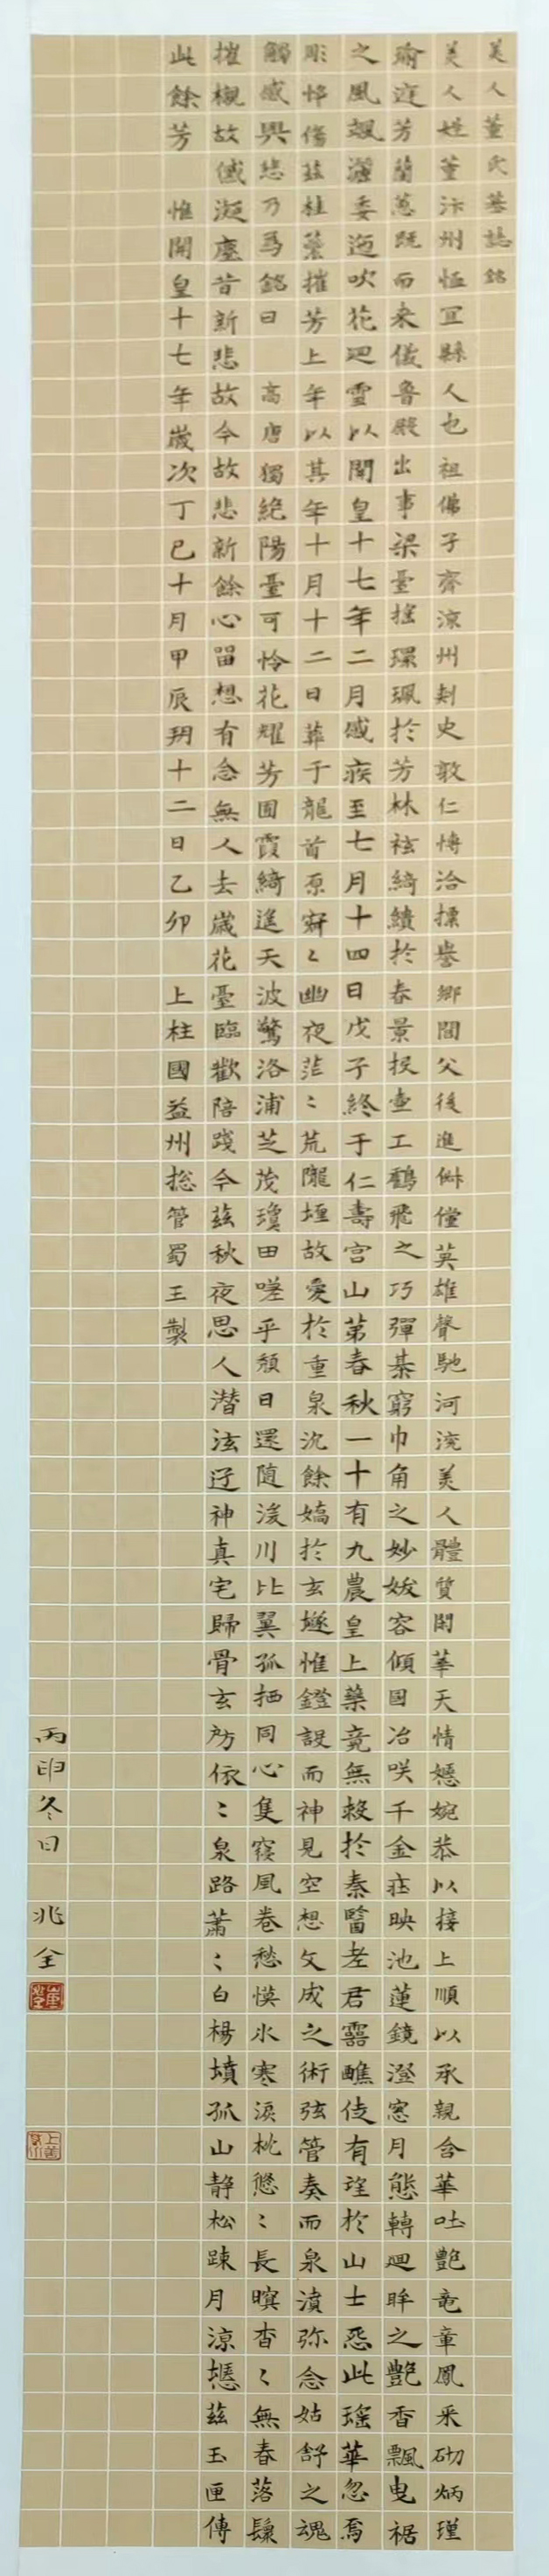 美人董氏墓誌銘
美人姓董汴州恤宜縣人也祖佛子齊涼州刾史敦仁博洽摽譽鄉閭父後進俶儻英雄聲馳河渷美人體質閑華天情婉嫕恭以接上順以承親含華吐艷竜章鳳采砌炳瑾
瑜庭芳蘭蕙既而来儀魯殿出事梁臺搖環珮於芳林袨綺繢於春景投壷工鶴飛之巧彈棊窮巾角之妙妖容傾国冶咲千金荘映池蓮鏡澄窓月態轉迴眸之艷香飄曳裾
之風颯灑委迤吹花迴雪以開皇十七年二月感疾至七月十四日戊子終于仁壽宮山第春秋一十有九農皇上藥竟無救於秦醫老君靈醮徒有望於山士惌此瑤華忽焉
彫悴傷茲桂蘂摧芳上年以其年十月十二日葬于龍首原寂〻幽夜茫〻荒隴埋故愛於重泉沉餘嬌於玄燧惟鐙設而神見空想文成之術弦管奏而泉濆弥念姑舒之魂
觸感興悲乃為銘曰 高唐獨絕陽臺可怜花耀芳囿霞綺遙天波驚洛浦芝茂瓊田嗟乎頹日還随湲川比翼孤栖同心隻寢風卷愁幙氷寒淚枕悠〻長暝杳〻無春落鬟
摧櫬故黛凝塵昔新悲故今故悲新餘心留想有念無人去歲花臺臨歡陪踐今茲秋夜思人潜泫迋神真宅歸骨玄房依〻泉路蕭〻白楊墳孤山静松踈月涼瘞茲玉匣傳
此餘芳 惟開皇十七年歲次丁巳十月甲辰朔十二日乙卯 上柱國益州捴管蜀王製
丙申冬日 兆全